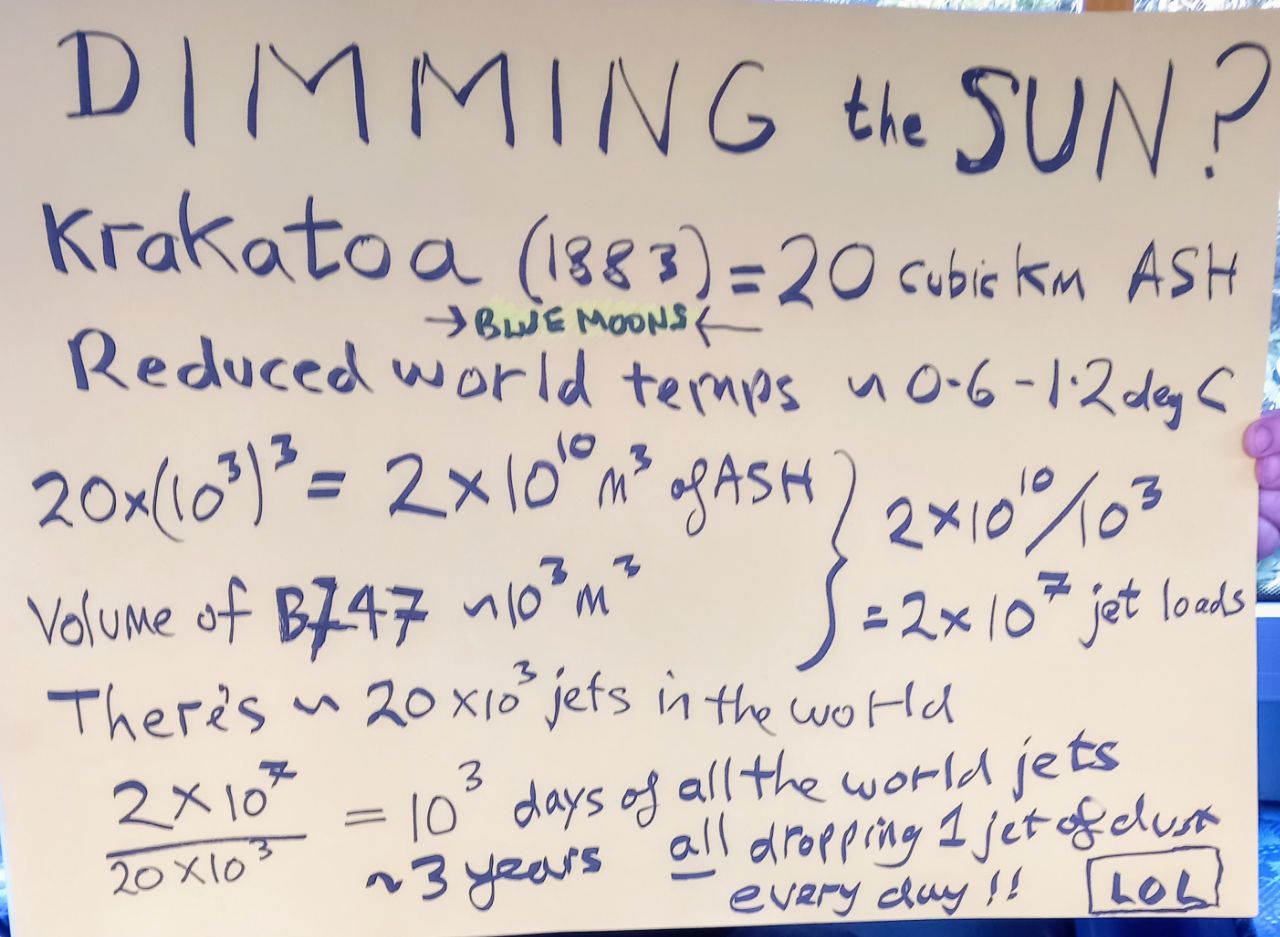 DIMMING the SUN?
Krakatoa (1883) = 20 cubic km ASH
→ BLUE MOONS ←
Reduced world temps ~ 0.6 - 1.2 deg C
20x(10³)³ = 2x10¹⁰ m³ of ASH } 2x10¹⁰/10³
Volume of B747 ~10³ m³ = 2x10⁷ jet loads
There's ~ 20x10³ jets in the world
2x10⁷/20x10³ = 10³ days of all the world jets
~3 years all dropping 1 jet of dust
every day!! LOL